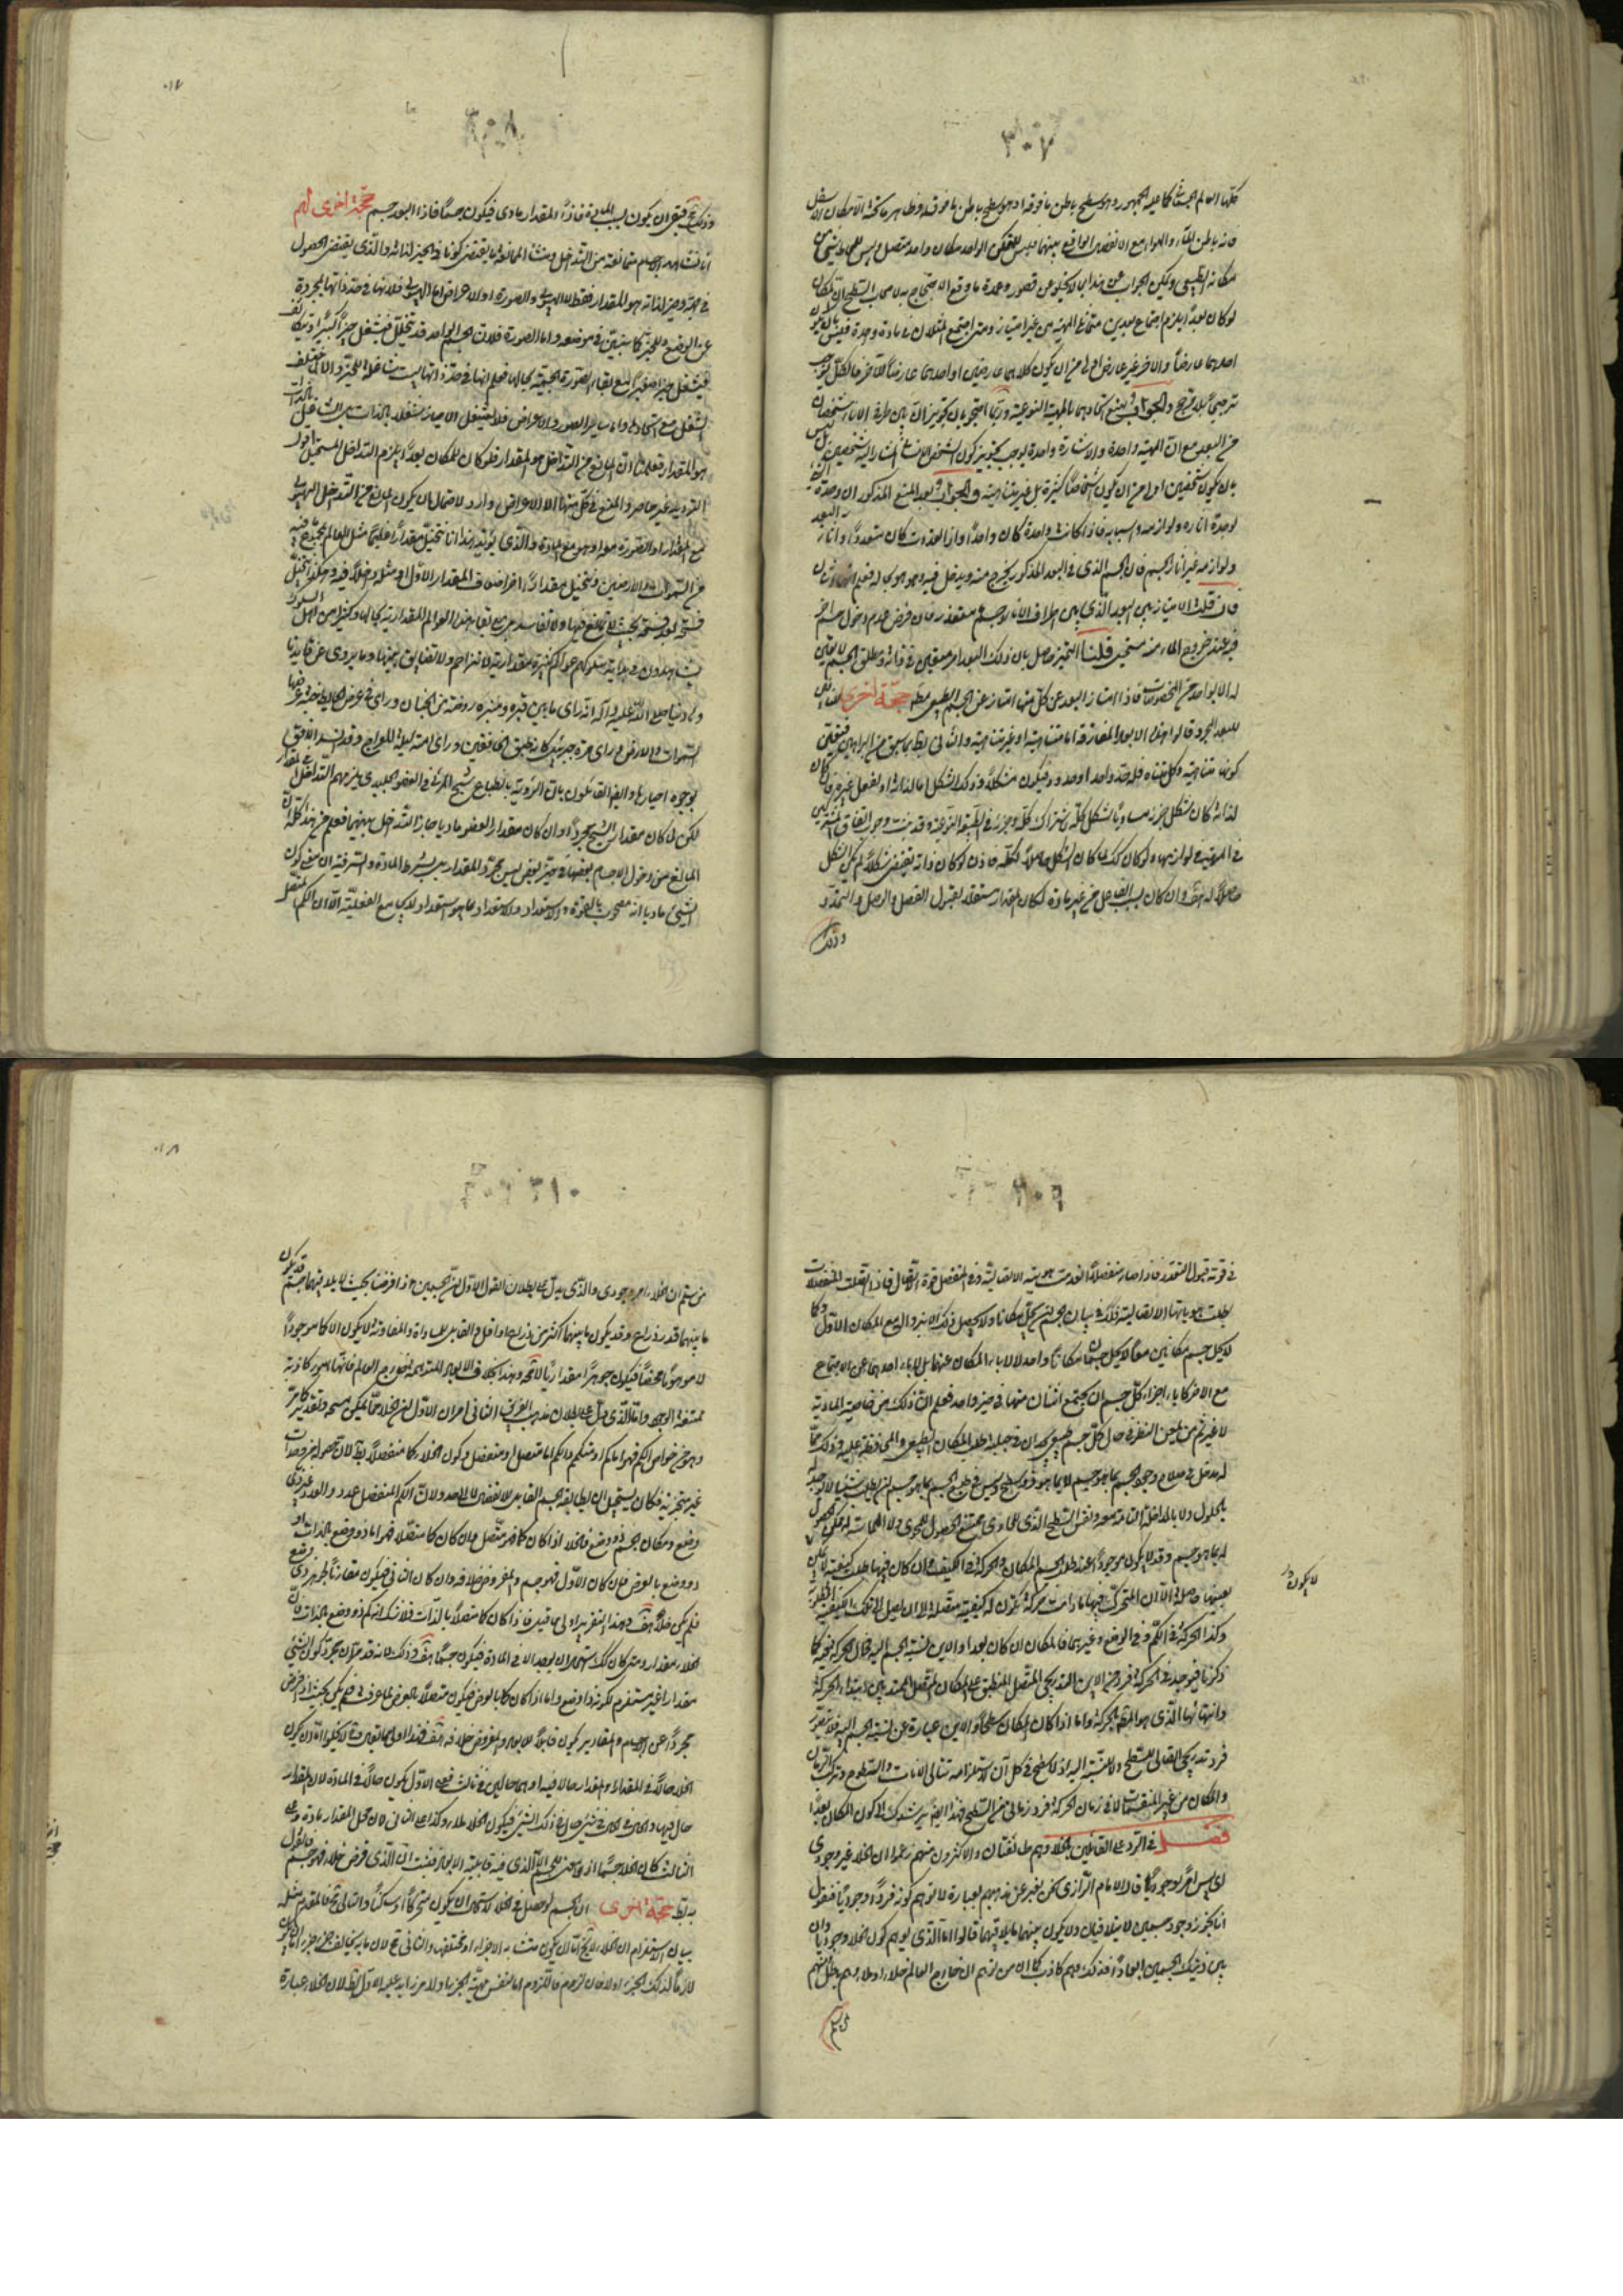 ٣٠٧
فان باطن الماء والهواء مع الانفصال الواقع بينهما فليس للمتمكن الواحد مكان واحد متصل وليس للحاوى شىء من
مكانه الطبيعى ولكن الجواب عن هذا لا يخلو عن قصور وعمدة ما وقع الاحتجاج به لاصحاب السطح ان المكان
لو كان بعدا يلزم اجتماع بعدين متماثلى المهية من غير امتياز ومتى اجتمع المثلان فى مادة واحدة فليس بان يكون
احدهما عارضا والاخر غير عارض اولى من ان يكون كلاهما عارضين او احدهما عارضا للآخر فالكل يوجب
ترجيحا بلا مرجح والجواب بمنع اتحادهما بالمهية النوعية وربما احتجوا بان تجويز ان بين طرفى الاناء شخصان
من البعد مع ان المهية واحدة والاشارة واحدة يوجب تجويز كون الشخص الانسانى المشار اليه شخصين بل ليس
بان يكون شخصين اولى من ان يكون اشخاصا كثيرة بل غير متناهية والجواب بعد المنع المذكور ان وحدة الشىء
لوحدة آثاره ولوازمه واسبابه فاذا كانت واحدة كان واحدا واذا تعددت كان متعددا وآثار البعد
ولوازمه غير آثار الجسم فان الجسم الذى فى البعد المذكور يخرج منه ويدخل فيه وهو هو بحاله فعلم انهما اثنان
فان قلت الامتياز بين البعد الذى بين اطراف الاناء وجسم متعذر فان فرض عدم دخول جسم آخر
فيه عند خروج الماء منه مستحيل قلنا التميز حاصل بان ذلك البعد امر معين فى ذاته ومطلق الجسم لا تعين
له الا بواحد من المخصصات فاذا امتاز البعد عن كل منها امتاز عن الجسم الطبيعى مطلقا حجة اخرى لنفاة
البعد المجرد قالوا هذه الابعاد المفارقة اما متناهية او غير متناهية والثانى باطل بما سبق من البراهين فتعين
كونها متناهية وكل متناه فله حد واحد او حدود فيكون مشكلا وذلك الشكل اما لذاته او بفعل غيره فان كان
لذاته كان شكل جزء مساويا لشكل كله لاشتراك كله وجزئه فى الطبيعة النوعية وقد ثبت وجوب اتفاق المشتركين
فى المهية فى لوازمها ولو كان كذلك لما كان الشكل حاصلا لكله فاذن لو كان ذاته يقتضى شكلا لم يكن الشكل
حاصلا له هف وان كان بسبب الفاعل من غير مادة لكان المقدار مستقلا بقبول الفصل والوصل والتمدد
وذلك
٣٠٨
وذلك محال فبقى ان يكون بسبب المادة فاذا المقدار مادى فيكون جسما فاذا البعد جسم حجة اخرى لهم
انا نشاهد الاجسام متمانعة من التداخل ومنشأ الممانعة ما يقتضى كونها فى الحيز لذاته والذى يقتضى الحصول
فى جهة وحيز لذاته هو المقدار فقط لا الهيولى والصورة والاعراض اما الهيولى فلانها فى حد ذاتها مجردة
عن الوضع والحيز كما تبين فى موضعه واما الصورة فلان الجسم الواحد قد يتخلخل فيشغل حيزا كبيرا ويتكاثف
فيشغل حيزا صغيرا مع بقاء الصورة الجسمية بحالها فعلم انها فى حد ذاتها ليست شاغلة للحيز والا لم يختلف
الشغل مع اتحادها واما سائر الصور والاعراض فلا يشتغل الاحياز شغلا بالذات بل الشاغل بالذات
هو المقدار فعلمنا ان المانع من التداخل هو المقدار فلو كان للمكان بعدا يلزم التداخل المستحيل اقول
الترديد غير حاصر والمنع فى كل منها الا الاعراض وارد لاحتمال ان يكون المانع من التداخل الهيولى
مع المقدار او الصورة معه او هو مع المادة والذى يؤيد هذا انا نتخيل مقدارا عظيما مثل العالم بجميع ما فيه
من السموات والارضين ونتخيل مقدارا آخر اضعاف المقدار الاول او مثله داخلا فيه وهكذا نتخيل
فسحة بعد فسحة بحيث لا تمانع فيها ولا تفاسد بل مع بقاء هذه العوالم المقدارية بحالها وكثير من اهل السلوك
يشاهدون فى بداية سلوكهم عوالم كثيرة مقدارية لا تزاحم ولا تضايق بينها وما يروى عن قائدنا
وهادينا صلى الله عليه وآله انه رأى ما بين قبره ومنبره روضة من الجنان ورأى فى عرض الحائط جنة عرضها
السموات والارض ورأى مرة جبرئيل كانه طبق الخافقين ورأى امته ليلة المعراج وقد انسد الافق
بوجوه احيارها وايضا القائلون بان الرؤية بانطباع شبح المرئى فى العضو الجليدى يلزمهم التداخل فى المقدار
لكن لما كان مقدار الشبح مجردا وان كان مقدار العضو ماديا جاز التداخل بينهما فعلم من هذا كله ان
المانع من دخول الاجسام بعضها فى حيز بعض ليس مجرد المقدار بل بشرط المادة والسر فيه ان معنى كون
الشىء ماديا انه مصحوب بالقوة والاستعداد والاستعداد بما هو استعداد لا يجامع الفعلية الا ان الكم المتصل
٣٠٩
فى قوته قبول التعدد فاذا صار منفصلا انعدمت هويته الاتصالية وفى المنفصل قوة الاتصال فاذا اتصلت المنفصلات
بطلت هوياتها الانفصالية فكذلك شأن الجسم لم يخل مكانا ولا يحصل ذلك الا بزواله مع المكان الاول وكما
لا يحل جسم مكانين معا لا يحل جسمان مكانا واحدا لا لاباء المكان عنهما بل لاباء احدهما عن الاجتماع
مع الآخر كاباء اجزاء كل جسم ان يجتمع اثنان منها فى حيز واحد فعلم ان ذلك من خاصية المادية
لا غير ثم من امعن النظر فى حال كل جسم طبيعى يجد ان فى جبلته طلب المكان الطبيعى والمحافظة عليه وذلك مما
له مدخل فى صلاح وجود الجسم بما هو جسم لا بما هو ذو سطح وليس فى طبع الجسم بما هو جسم ان يطلب شيئا لا يوجد له
بالحلول ولا بالمداخلة التامة معه ونفس السطح الذى للحاوى ممتنع الحصول للمحوى ولا المماسة له ممكن الحصول
له بما هو جسم وقد لا يكون موجودا عند طلب الجسم المكان والحركة فى الكيف وان كان فيها طلب كيفية لا يكون
بعينها حاصلة الا ان المتحرك فيها ما دامت حركة تكون له كيفية متصلة الى ان يصل الى تلك الكيفية المطلوبة
وكذا الحركة فى الكم وفى الوضع وغيرهما فالمكان ان كان بعدا والاين نسبة الجسم اليه فحال الحركة فيه كما
ذكرنا فيوجد فى الحركة فرد من الاين التدريجى المتصل المنطبق على المكان المتصل الممتد بين ابتداء الحركة
وانتهائها الذى هو المقصود بالحركة واما اذا كان المكان سطحا والاين عبارة عن نسبة الجسم اليه فلا يتصور
فرد تدريجى اتصالى للسطح ولا للنسبة اليه اذ لا سطح فى كل آن لاستلزامه تتالى الآنات والسطوح وتركب الزمان
والمكان من غير المنقسمات الا فى زمان الحركة فرد زمانى من السطح فهذا ايضا يرشدك الى كون المكان بعدا
فصل فى الرد على القائلين بالخلاء وهم طائفتان والاكثرون منهم زعموا ان الخلاء غير وجودى
اى ليس امرا موجودا قال الامام الرازى نحن نعبر عن مذهبهم بعبارة لا توهم كونه فردا وجوديا فنقول
انا نجوز وجود جسمين لا يتلاقيان ولا يكون بينهما ما يلاقيهما قالوا اما الذى يوهم كون الخلاء وجوديا وان
بين ذينك الجسمين ابعادا فذلك وهم كاذب كما ان من توهم ان خارج العالم خلاء او ملاء وهم باطل ومنهم
من سلم
لا يكون
٣١٠
من سلم ان الخلاء امر وجودى والذى يدل على بطلان القول الاول ان الجسمين اذا فرضا بحيث لا يلاقيهما جسم قد يكون
ما بينهما قدر ذراع وقد يكون ما بينهما اكثر من ذراع او اقل والقابل للمساواة والمفاوتة لا يكون الا كما موجودا
لا موهوما محضا فيكون جوهرا مقداريا لا محالة وهذا بخلاف الابعاد المتوهمة لخارج العالم فانها امور كاذبة
ممتنعة الوجود واما الذى يدل على بطلان مذهب الفريق الثانى امران الاول ان الخلاء مما يمكن مسحه وتقديره كما مر
وهو من خواص الكم فهو اما كم او متكمم والكم اما متصل او منفصل وكون الخلاء كما منفصلا باطل لان حصوله من وحدات
غير متجزية فكان يستحيل ان يطابقه الجسم القابل للانقسام لا الى حد ولان الكم المنفصل عدد والعدد غير ذى
وضع ومكان الجسم ذو وضع فالخلاء اذا كان كما فهو متصل فان كان كما متصلا فهو اما ذو وضع بالذات او
ذو وضع بالعرض فان كان الاول فهو جسم والمفروض خلافه وان كان الثانى فيكون مقارنا لجوهر ذى وضع
فلم يكن خلاء هف وهذا التقرير اولى مما قيل فاذا كان كما متصلا بالذات فلا شك انه كم ذو وضع بالذات لان
الخلاء مقدار ومتى كان كذلك استحال ان يوجد الا فى المادة فيكون جسما هف وذلك لانه قد مر ان مجرد كون الشىء
مقدارا غير مستلزم لكونه ذا وضع واما اذا كان كما بالعرض فيكون متصلا بالعرض لما عرفت فلم يكن بحيث اذا فرض
مجردا عن الاجسام والمقادير يكون قابلا للابعاد والمفروض خلافه هف
الخلاء حالا فى المقدار او المقدار حالا فيه او هما حالين فى ثالث فعلى الاول يكون حالا فى المادة لان المقدار
حال فيها والحال فى الحال فى شىء حال فى ذلك الشىء فيكون الخلاء ملاء وكذا على الثانى لان محل المقدار مادة وعلى
الثالث كان الخلاء جسما اذ لا معنى للجسم الا الذى فيه قابلية الابعاد فثبت ان الذى فرض خلاء فهو جسم فالقول
به باطل حجة اخرى ان الجسم لو حصل فى الخلاء لاستحال ان يكون متحركا او ساكنا والتالى محال فالمقدم مثله
بيان الاستلزام ان الخلاء لا يخ اما ان يكون متشابه الاجزاء او مختلفها والثانى محال لان ما به يخالف جزء جزءا اما ان يكون
لازما لذلك الجزء او لا فان لزم فاللزوم اما لنفس مهية الجزء او لامر زايد عليه والاول باطل لان الخلاء عبارة